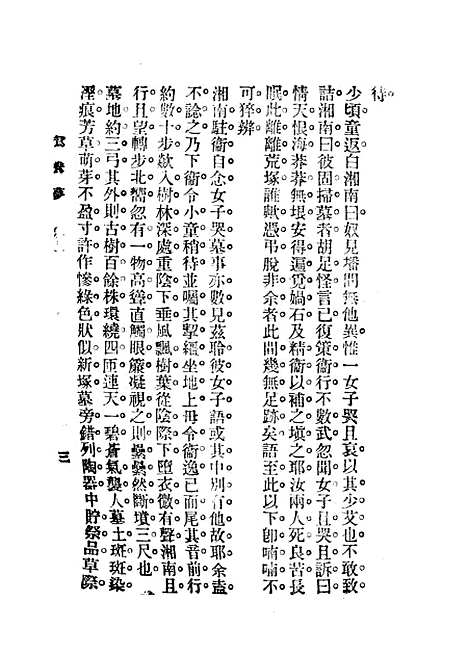 待。
少頃童返白湘南曰奴見墦間無他異惟一女子哭且哀以其少艾也不敢致
詰湘南曰彼固掃墓者胡足怪言已復策衛行不數武忽聞女子且哭且訴曰
情天恨海莽莽無垠安得遍覓媧石及精衛以補之塡之耶汝兩人死良苦長
眠此離離荒塚誰歟憑弔脫非余者此間幾無足跡矣語至此以下卽喃喃不
可猝辨
湘南駐衛自念女子哭墓事亦數見茲聆彼女子語或其中別有他故耶余盍
不諗之乃下衛令小童稍待並囑其挈繮坐地上毋令衛逸已而尾其音前行
約數十步歘入樹林深處重陰下垂風飄樹葉從陰際下墮衣微有聲湘南且
行且望轉步北嚮忽有一物高聳直觸眼簾凝視之則纍纍然斷墳三尺也
墓地約三弓其外則古樹百餘株環繞四匝連天一碧蒼氣襲人墓土斑斑染
溼痕芳草萌芽不盈寸許作慘綠色狀似新塚墓旁錯列陶器中貯祭品草際
三